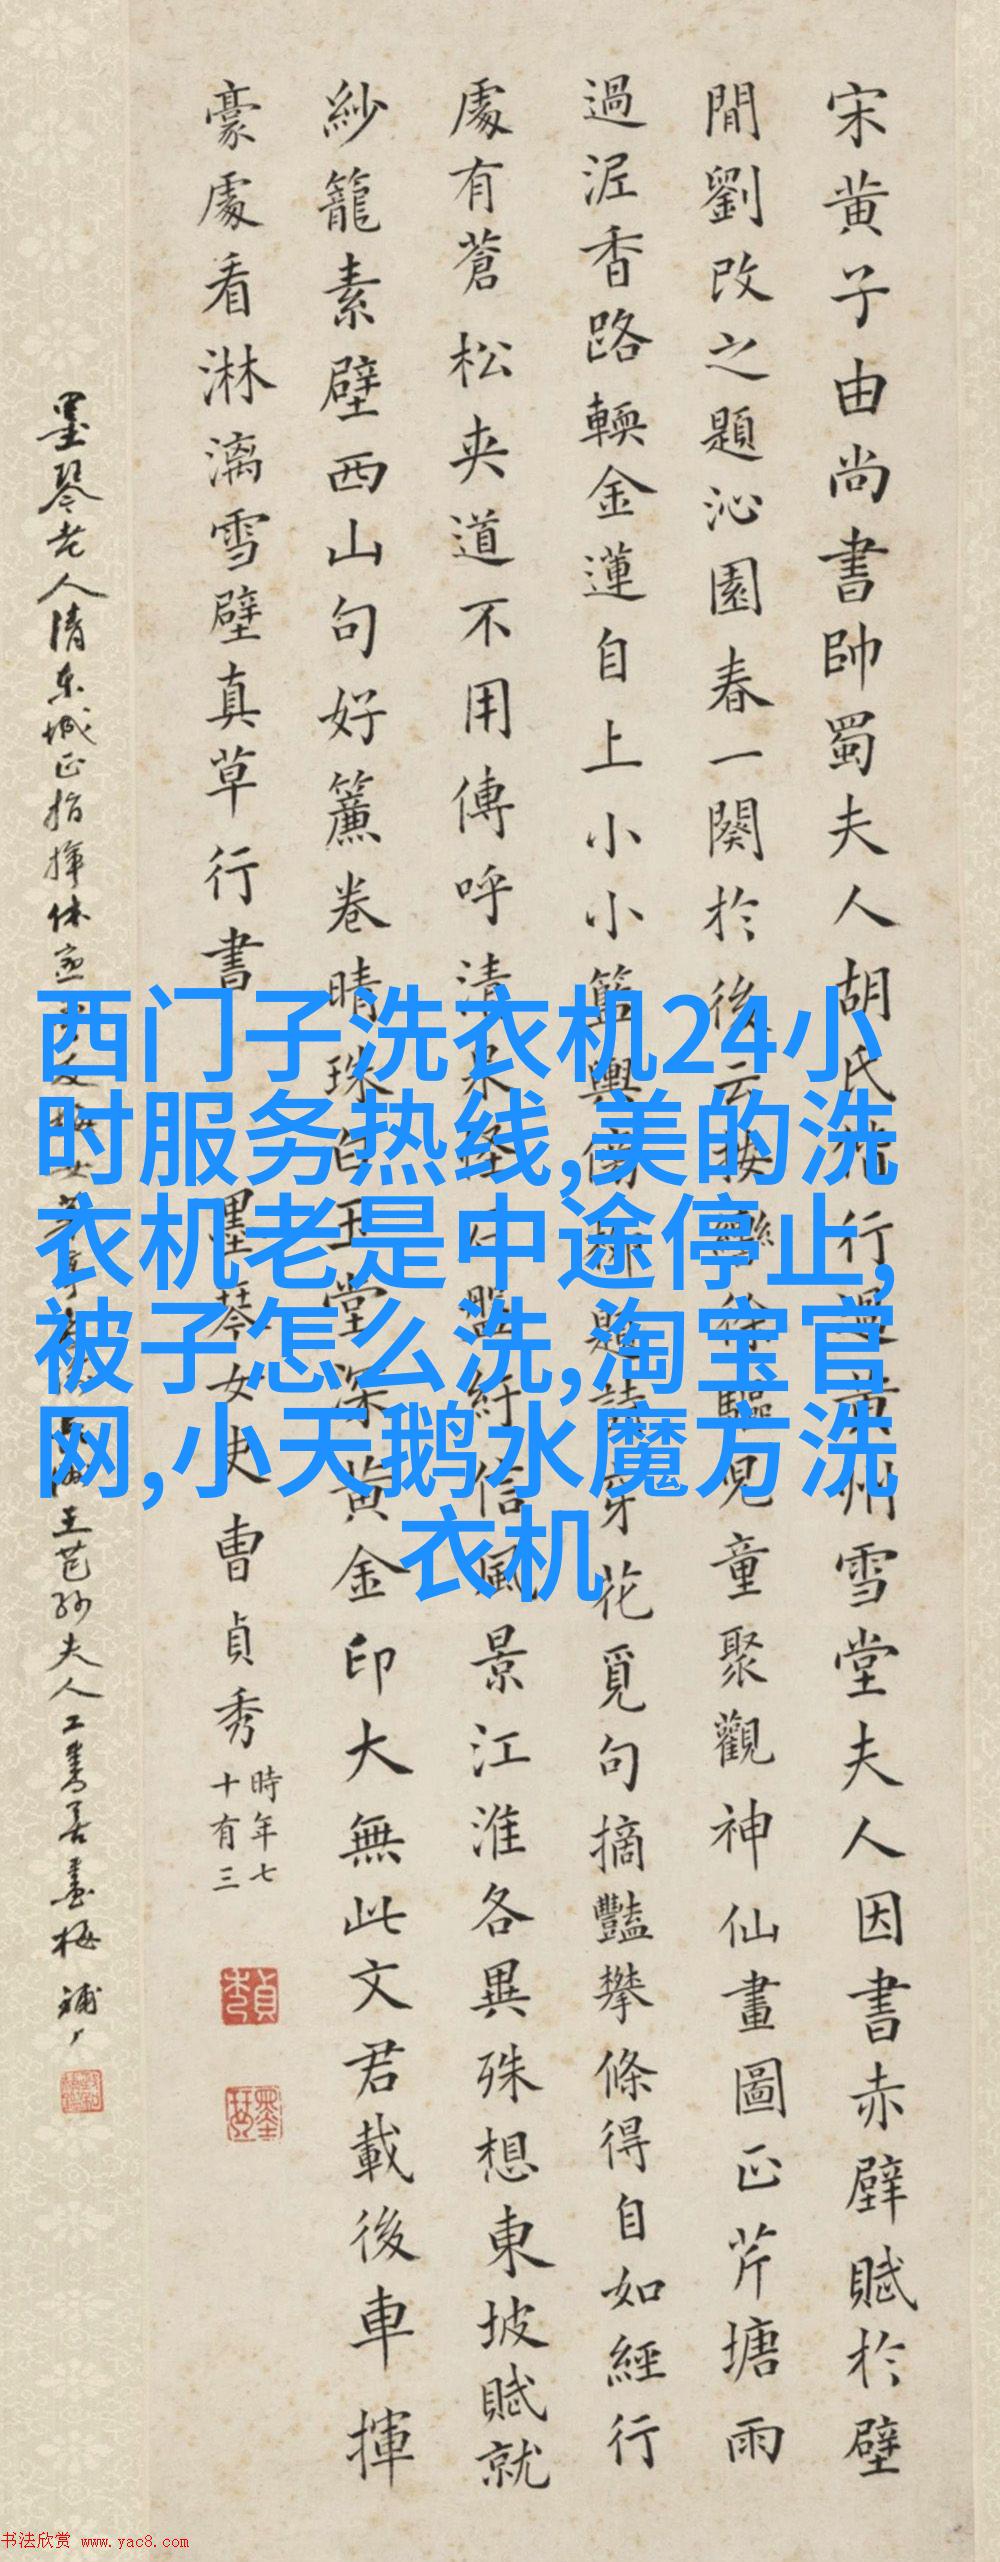 宋黄子由尚書帥蜀夫人胡氏偕行過黄州雪堂夫人因書赤壁賦於壁
間劉改之題沁園春一闋於後云按轡徐驅兒童聚觀神仙畫圖正芹塘雨
過泥香路輭金蓮自上小小籃輿傍柳題詩穿花覓句摘豔攀條得自如經行
處有蒼松夾道不用傳呼清泉怪石盤紆信風景江淮各異殊想東坡賦就
紗籠素壁西山句好簾卷晴珠白玉堂深黄金印大無此文君載後車揮
豪處看淋漓雪壁真草行書 墨琴女史曹貞秀
時年七
十有三
墨琴老人清東城正指揮休 王芑孙夫人工書善畫梅
西门子洗衣机24小
时服务热线,美的洗
衣机老是中途停止,
被子怎么洗,淘宝官
网,小天鹅水魔方洗
衣机
书法欣赏 www.yac8.com